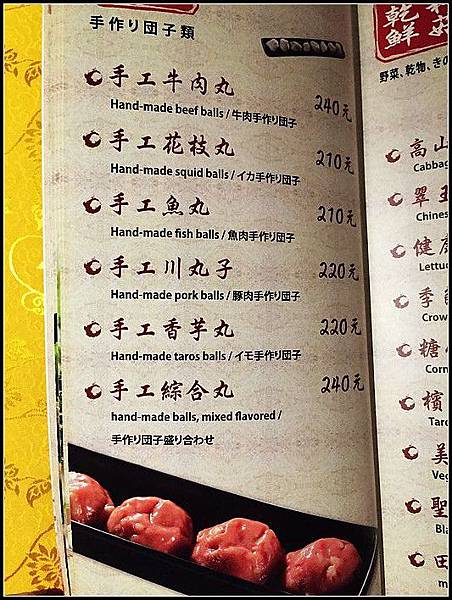 手作り団子類
手工牛肉丸 240元
Hand-made beef balls / 牛肉手作り団子
手工花枝丸 210元
Hand-made squid balls / イカ手作り団子
手工魚丸 210元
Hand-made fish balls / 魚肉手作り団子
手工川丸子 220元
Hand-made pork balls / 豚肉手作り団子
手工香芋丸 220元
Hand-made taros balls / イモ手作り団子
手工綜合丸 240元
hand-made balls, mixed flavored /
手作り団子盛り合わせ
乾鮮
野菜、乾物、きの
高山
Cabbag
翠玉
Chines
健康
Lettuc
季節
Crow
糖
Corn
檳
Taro
美
Veg
聖
Bla
田
m